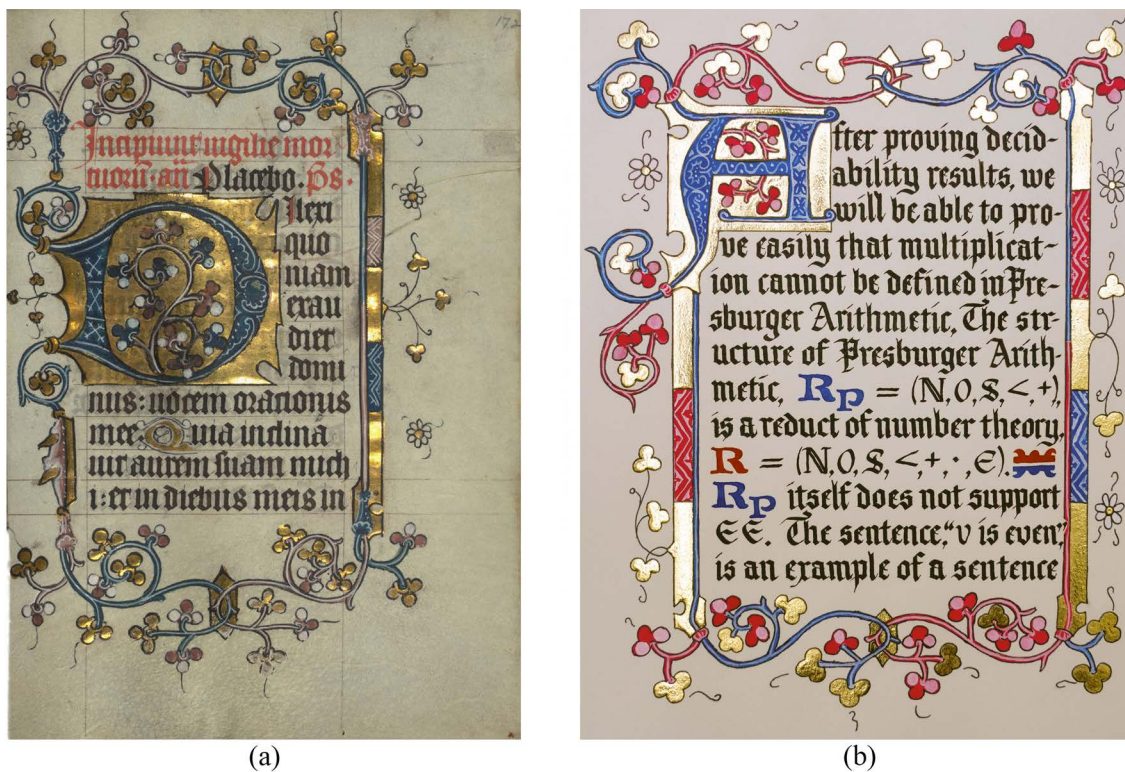 172
Incipiunt uigilie mor
tuorū · añ Placebo. ps.
Dilexi
quo
niam
exau
diet
domi
nus: uocem orationis
mee. Quia inclina
uit aurem suam mich
i: et in diebus meis in
(a)
After proving decid-
ability results, we
will be able to pro-
ve easily that multiplicat-
ion cannot be defined in Pre-
sburger Arithmetic. The str-
ucture of Presburger Arith-
metic, Rp = (N, O, S, <, +),
is a reduct of number theory,
R = (N, O, S, <, +, ·, E).
Rp itself does not support
EE. The sentence, “v is even,”
is an example of a sentence
(b)